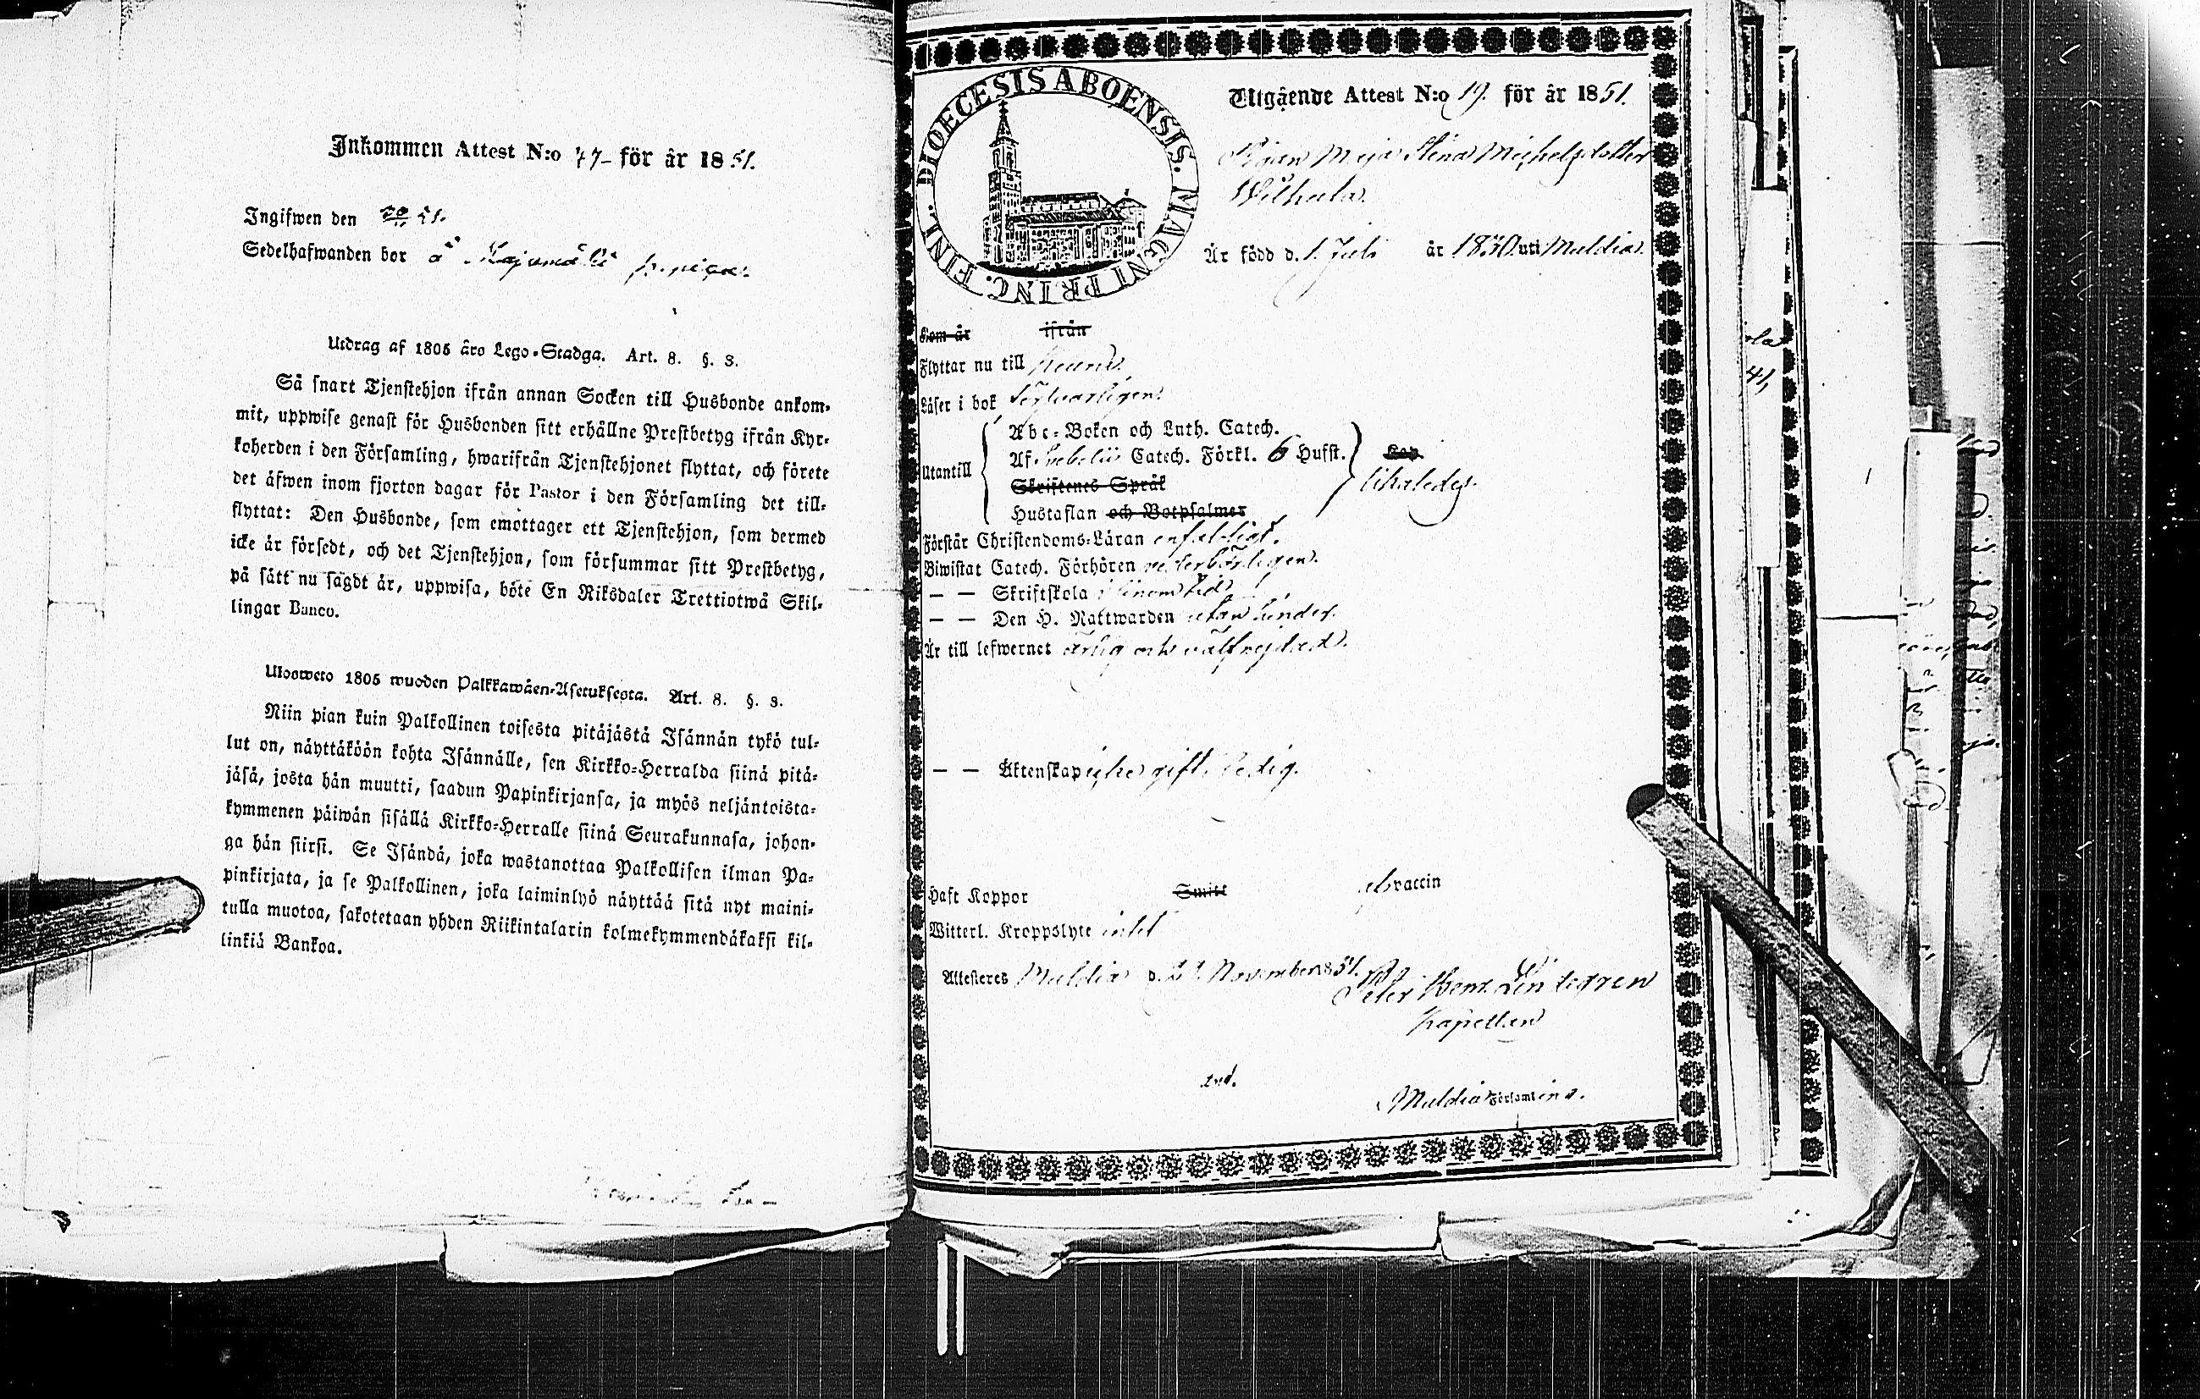 Inkommen Attest N:o 47- för år 1851.
Ingifwen den 51.
Sedelhafwanden bor å piga.
Utdrag af 1805 års Lego-Stadga. Art. 8. §. 3.
Så snart Tjenstehjon ifrån annan Socken till Husbonde ankom-
mit, uppwise genast för Husbonden sitt erhållne Prestbetyg ifrån Kyr-
koherden i den Församling, hwarifrån Tjenstehjonet flyttat, och förete
det äfwen inom fjorton dagar för Pastor i den Församling det till-
flyttat: Den Husbonde, som emottager ett Tjenstehjon, som dermed
icke är försedt, och det Tjenstehjon, som försummar sitt Prestbetyg,
på sätt nu sagdt är, uppwisa, böte En Riksdaler Trettiotwå Skil-
lingar Banco.
Ulosweto 1805 wuoden Palkkawäen-Asetuksesta. Art. 8. §. 3.
Niin pian kuin Palkollinen toisesta pitäjästä Isännän tykö tul-
lut on, näyttäköön kohta Isännälle, sen Kirkko-Herralda siinä pitä-
jäsä, josta hän muutti, saadun Papinkirjansa, ja myös neljäntoista-
kymmenen päiwän sisällä Kirkko-Herralle siinä Seurakunnasa, johon-
ga hän siirsi. Se Isändä, joka wastanottaa Palkollisen ilman Pa-
pinkirjata, ja se Palkollinen, joka laiminlyö näyttää sitä nyt maini-
tulla muotoa, sakotetaan yhden Riikintalarin kolmekymmendäkaksi kil-
linkiä Bankoa.
DIOECESIS ABOENSIS. MAGNI PRINC. FINL.
Utgående Attest N:o 19. för år 1851.
Pigan Maja Stina Michelsdotter
Wilhula.
Är född d. 1 Juli år 1830 uti Muldia.
Kom år ifrån
Flyttar nu till Keuru.
Läser i bok försvarligen.
Utantill
Abc-Boken och Luth. Catech.
Af Svebelii Catech. Förkl. 6 Hufst.
Skriftenes Språk
Hustaflan och Botpsalmer
likaledes.
Förstår Christendoms-Läran enfaldigt.
Biwistat Catech. Förhören vederbörligen.
— — Skriftskola i sinom tid
— — Den H. Nattwarden utan hinder.
Är till lefwernet ärlig och välfrejdad.
— — Äktenskap icke gift. Ledig.
Haft Koppor Smitt vaccin
Witterl. Kroppslyte intet
Attesteres Muldia d. 21 November 1851.
Peter Henr. Lindegren
Kapellan
Muldia Församling.